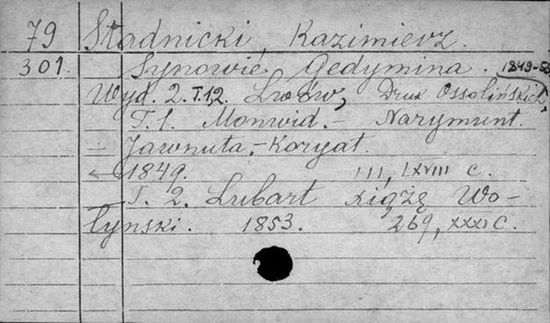 79 Stadnicki, Kazimierz.
301. Synowie Gedymina. 1849-53
Wyd. 2. T. 1 2. Lwów, Druk Ossolińskich,
T. 1. Monwid. - Narymunt.
- Jawnuta. - Koryat.
1849. III, LXVIII c.
T. 2. Lubart xiążę Wo-
łynski. 1853. 269, XXXI C.